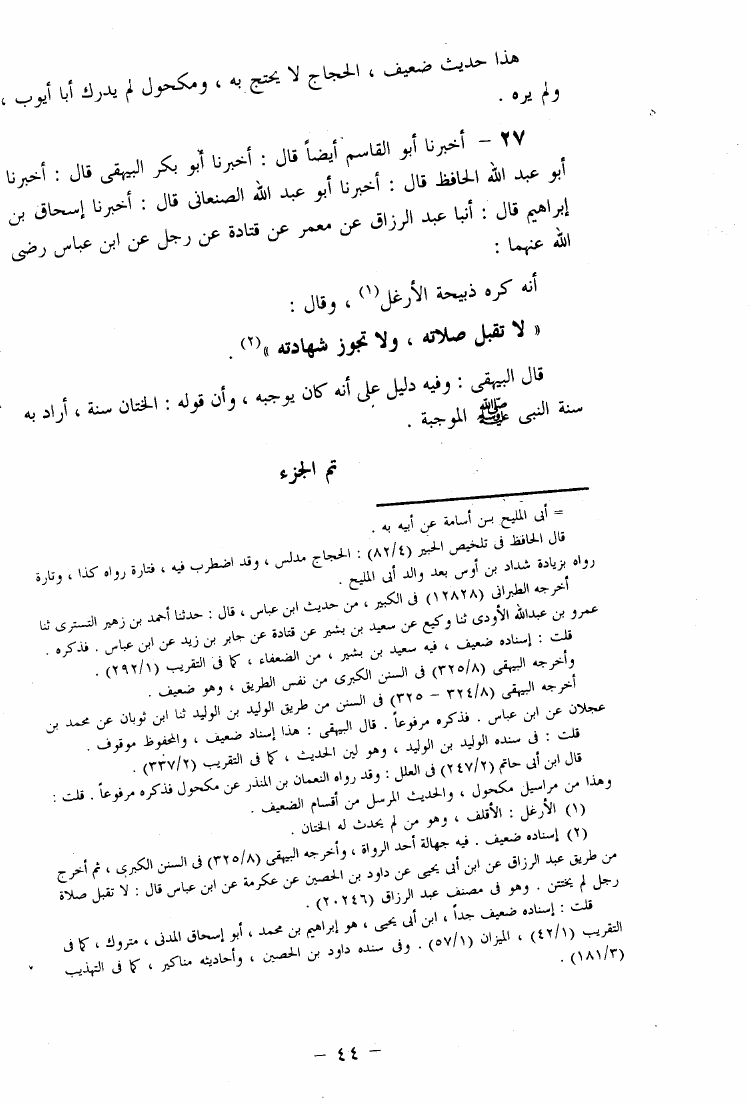 هذا حديث ضعيف ، الحجاج لا يحتج به ، ومكحول لم يدرك أبا أيوب ،
ولم يره .
٢٧ – أخبرنا أبو القاسم أيضاً قال : أخبرنا أبو بكر البيهقى قال : أخبرنا
أبو عبد الله الحافظ قال : أخبرنا أبو عبد الله الصنعانى قال : أخبرنا إسحاق بن
إبراهيم قال : أنبا عبد الرزاق عن معمر عن قتادة عن رجل عن ابن عباس رضى
الله عنهما :
أنه كره ذبيحة الأرغل(١) ، وقال :
« لا تقبل صلاته ، ولا تجوز شهادته »(٢) .
قال البيهقى : وفيه دليل على أنه كان يوجبه ، وأن قوله : الختان سنة ، أراد به
سنة النبى ﷺ الموجبة .
تم الجزء
= أبى المليح بن أسامة عن أبيه به .
قال الحافظ فى تلخيص الحبير (٨٢/٤) : الحجاج مدلس ، وقد اضطرب فيه ، فتارة رواه كذا ، وتارة
رواه بزيادة شداد بن أوس بعد والد أبى المليح .
أخرجه الطبرانى (١٢٨٢٨) فى الكبير ، من حديث ابن عباس ، قال : حدثنا أحمد بن زهير التسترى ثنا
عمرو بن عبدالله الأودى ثنا وكيع عن سعيد بن بشير عن قتادة عن جابر بن زيد عن ابن عباس . فذكره .
قلت : إسناده ضعيف ، فيه سعيد بن بشير ، من الضعفاء ، كما فى التقريب (٢٩٢/١) .
وأخرجه البيهقى (٣٢٥/٨) فى السنن الكبرى من نفس الطريق ، وهو ضعيف .
أخرجه البيهقى (٣٢٤/٨ – ٣٢٥) فى السنن من طريق الوليد بن الوليد ثنا ابن ثوبان عن محمد بن
عجلان عن ابن عباس . فذكره مرفوعاً . قال البيهقى : هذا إسناد ضعيف ، والمحفوظ موقوف .
قلت : فى سنده الوليد بن الوليد ، وهو لين الحديث ، كما فى التقريب (٣٣٧/٢) .
قال ابن أبى حاتم (٢٤٧/٢) فى العلل : وقد رواه النعمان بن المنذر عن مكحول فذكره مرفوعاً . قلت :
وهذا من مراسيل مكحول ، والحديث المرسل من أقسام الضعيف .
(١) الأرغل : الأقلف ، وهو من لم يحدث له الختان .
(٢) إسناده ضعيف . فيه جهالة أحد الرواة ، وأخرجه البيهقى (٣٢٥/٨) فى السنن الكبرى ، ثم أخرج
من طريق عبد الرزاق عن ابن أبى يحيى عن داود بن الحصين عن عكرمة عن ابن عباس قال : لا تقبل صلاة
رجل لم يختتن . وهو فى مصنف عبد الرزاق (٢٠٢٤٦) .
قلت : إسناده ضعيف جداً ، ابن أبى يحيى ، هو إبراهيم بن محمد ، أبو إسحاق المدنى ، متروك ، كما فى
التقريب (٤٢/١) ، الميزان (٥٧/١) . وفى سنده داود بن الحصين ، وأحاديثه مناكير ، كما فى التهذيب
(١٨١/٣) .
– ٤٤ –